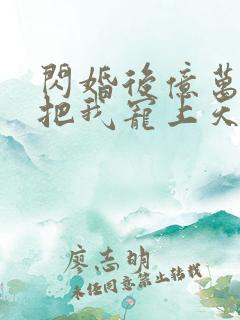 閃婚後億萬
把我寵上天
廖志明
未經同意禁止轉載